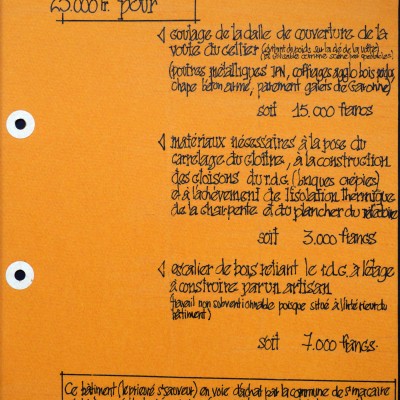 25.000 fr. pour
coulage de la dalle de couverture de la
voûte du cellier (évitant du poids sur la clé de la voûte)
(poutres métalliques IPN, coffrages agglo bois perdus
chape béton armé, parement galets de Garonne)
soit 15.000 francs
matériaux nécessaires à la pose du
carrelage du cloître, à la construction
des cloisons du r.d.g. (briques crépies)
et à l'achèvement de l'isolation thermique
de la charpente et du plancher du réfectoire
soit 3.000 francs
escalier de bois reliant le r.d.g. à l'étage
à construire par un artisan
(travail non subventionnable parceque situé à l'intérieur du
bâtiment)
soit 7.000 francs.
Ce bâtiment (le prieuré st sauveur) en voie d'achat par la commune de st macaire